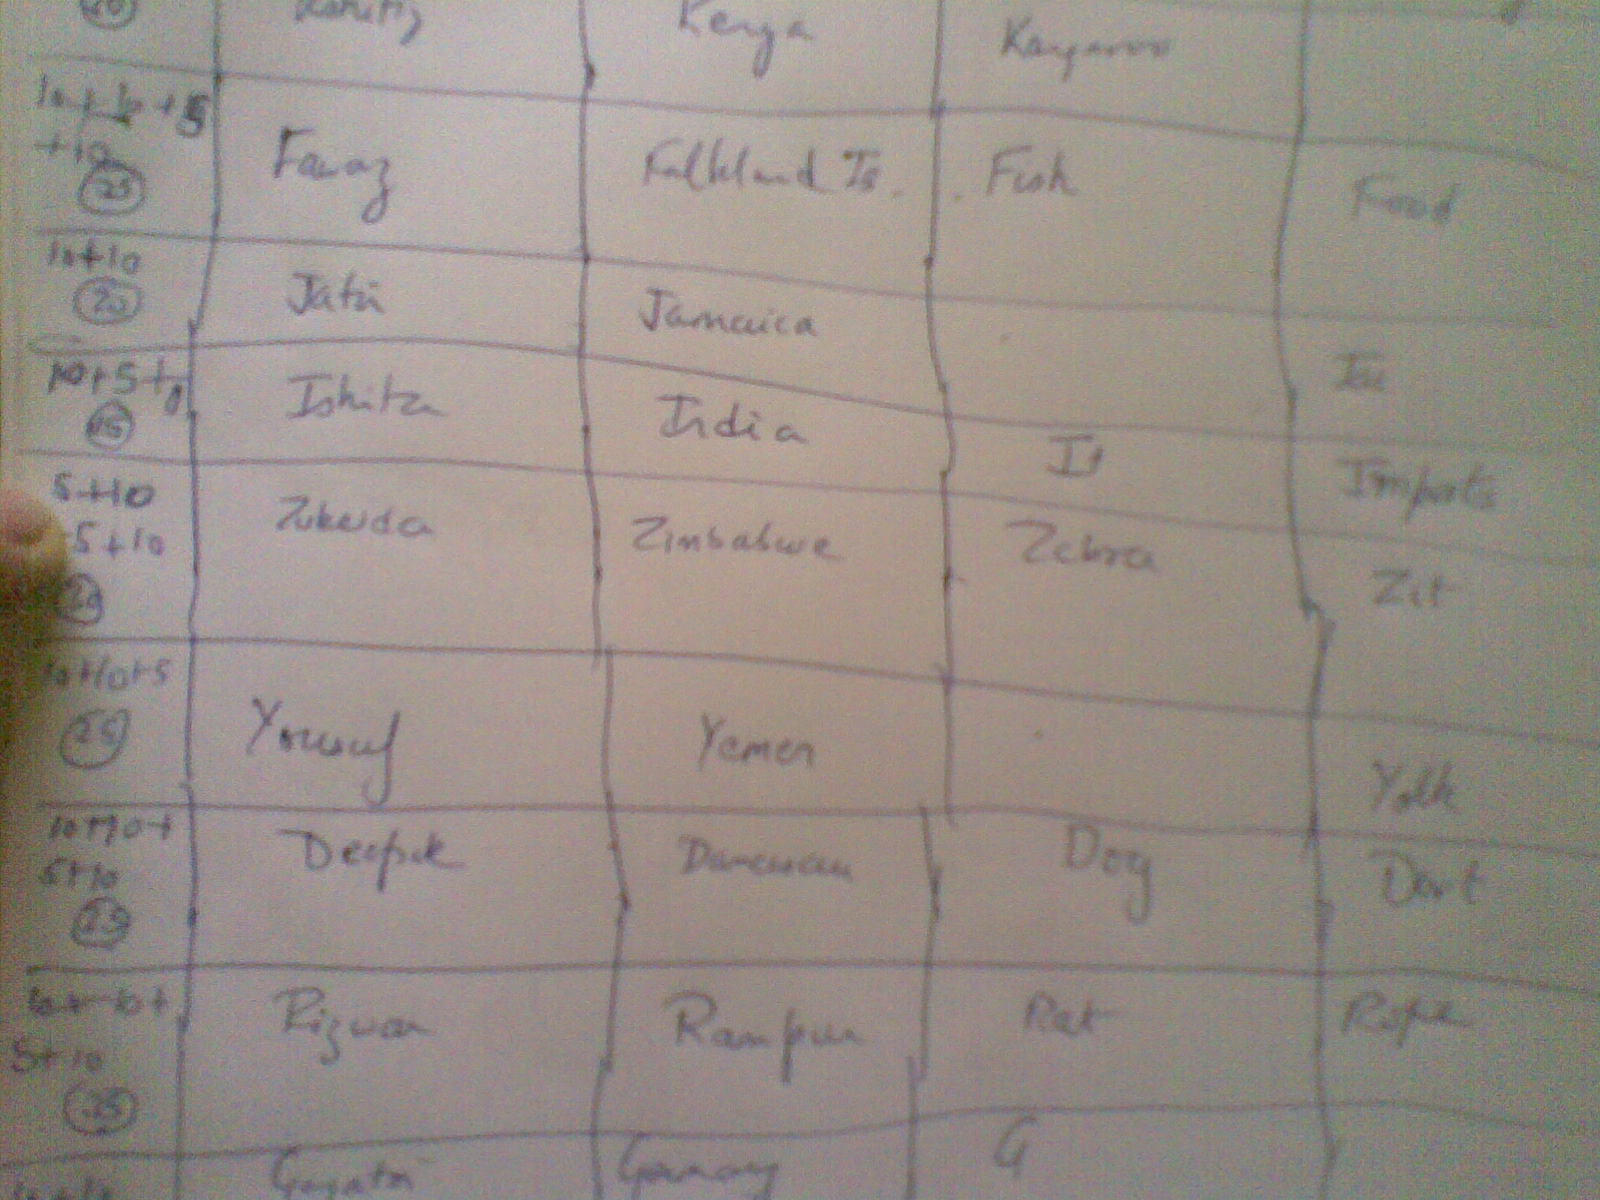 Kenya Kangaroo
10+10+5
+10
Faraz Falkland Is. Fish Food
25
10+10
20
Jatin Jamaica
10+5+0
15
Ishita India It Imports
5+10
5+10
Zubeida Zimbabwe Zebra Zit
10+10+5
25
Yousuf Yemen Yolk
10+10+
5+10
25
Deepak Dog Dart
10+10+
5+10
35
Rizwan Rampur Rat Rope
Gayatri Germany G